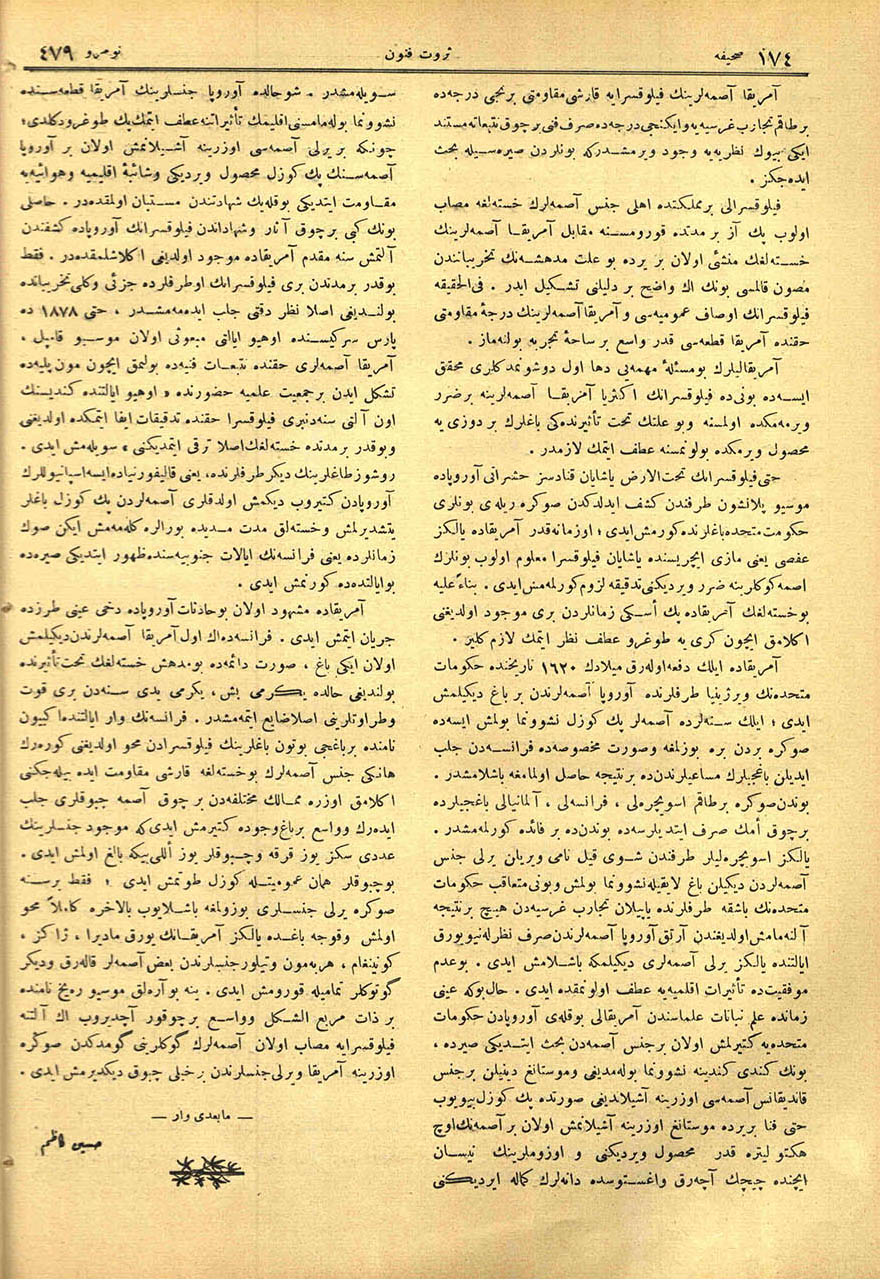 صحیفه ١٧٤
ثروت فنون
نومرو ٤٧٩
آمریقا آصمه‌لرینك فیلوقسرایه قارشی مقاومتی برنجی درجه‌ده
برطاقم تجارب غرسیه‌یه وایكنجی درجه‌ده صرف فنی برچوق تتبعاته مستند
ایكی بیوك نظریه‌یه وجود ویرمشدركه بونلردن صیره‌سیله بحث
ایده‌جكز .
فیلوقسرالی برمملكتده اهلی جنس آصمه‌لرك خسته‌لغه مصاب
اولوب پك آز برمدتده قورومسنه مقابل آمریقا آصمه‌لرینك
خسته‌لغك منشئی اولان بر یرده بو علت مدهشه‌نك تخریباتندن
مصون قالمسی بونك اك واضح بر دلیلنی تشكیل ایدر . فی‌الحقیقه
فیلوقسرانك اوصاف عمومیه‌سی و آمریقا آصمه‌لرینك درجۀ مقاومتی
حقنده آمریقا قطعه‌سی قدر واسع برساحۀ تجربه بولنه‌ماز .
آمریقالیلرك بومسئلۀ مهمه‌یی دها اول دوشونمدكلری محقق
ایسه‌ده بونی‌ده فیلوقسرانك اكثریا آمریقا آصمه‌لرینه برضرر
ویرمه‌مكده اولمسنه وبو علتك تحت تأثیرنده‌كی باغلرك بر دوزی‌یه
محصول ویرمكده بولونمسنه عطف ایتمك لازمدر .
حتی فیلوقسرانك تحت‌الارض یاشایان قنادسز حشراتی آوروپاده
موسیو پلانشون طرفندن كشف ایدلدكدن صوكره ریله‌ی بونلری
حكومت متحده باغلرنده كورمش ایدی ؛ اوزمانه قدر آمریقاده یالكز
عفصی یعنی مازی ایچریسنده یاشایان فیلوقسرا معلوم اولوب بونلرك
اصمه كوكلرینه ضرر ویردیكنی تدقیقه لزوم كورلمه‌مش ایدی . بناءً علیه
بوخسته‌لغك آمریقاده پك أسكی زمانلردن بری موجود اولدیغنی
اكلامق ایچون كری یه طوغرو عطف نظر ایتمك لازم كلیر .
آمریقاده ایلك دفعه‌اوله‌رق میلادك ١٦٢٠ تاریخنده حكومات
متحده‌نك ویرژینیا طرفلرنده آوروپا آصمه‌لرندن بر باغ دیكیلمش
ایدی ؛ ایلك سنه‌لرده آصمه‌لر پك كوزل نشوونما بولمش ایسه‌ده
صوكره بردن بره بوزلمغه وصورت مخصوصه‌ده فرانسه‌دن جلب
ایدیلن باغجیلرك مساعیلرندن‌ده برنتیجه حاصل اولمامغه باشلامشدر .
بوندن‌صوكره برطاقم اسویچره‌لی ، فرانسه‌لی ، آلمانیالی باغجیلرده
برچوق أمك صرف ایتدیلرسه‌ده بوندن‌ده بر فائده كورلمه‌مشدر .
یالكز اسویچره‌لیلر طرفندن شوی قیل نامی ویریلن یرلی جنس
آصمه‌لردن دیكیلن باغ لایقیله نشوونما بولمش وبونی متعاقب حكومات
متحده‌نك باشقه طرفلرنده یاپیلان تجارب غرسیه‌دن هیچ برنتیجه
آلنه‌مامش اولدیغندن آرتق آوروپا آصمه‌لرندن صرف نظرله نیویورق
ایالتنده یالكز یرلی آصمه‌لری دیكیلمكه باشلامش ایدی . بوعدم
موفقیت‌ده تأثیرات اقلیمیه‌یه عطف اولونمقده ایدی . حال‌بوكه عینی
زمانده علم نباتات علماسندن آمریقالی بوقله‌ی آوروپادن حكومات
متحده‌یه كتیرلمش اولان برجنس آصمه‌دن بحث ایتدیكی صیرده ،
بونك كندی كندینه نشوونما بوله‌مدیغی وموستانغ دینیلن برجنس
قاندیقانس آصمه‌سی اوزرینه آشیلاندیغی صورتده پك كوزل بیویوب
حتی فنا بریرده موستانغ اوزرینه آشیلانمش اولان بر آصمه‌نك اوچ
هكتولیتره قدر محصول ویردیكنی و اوزوملرینك نیسان
ایچنده چیچك آچه‌رق واغستوسده دانه‌لرك كماله ایردیكنی
سویله‌مشدر . شوحالده آوروپا جنسلرینك آمریقا قطعه‌سنده
نشوونما بوله‌مامسنی اقلیمك تأثیراتنه عطف ایتمك پك طوغرو دكلدی ؛
چونكه بریرلی آصمه‌سی اوزرینه آشیلانمش اولان بر آوروپا
آصمه‌سنك پك كوزل محصول ویردیكی وشائبۀ اقلیمیه وهوائیه‌یه
مقاومت ایتدیكی بوقله‌یك شهادتندن مستبان اولمقده‌در . حاصلی
بونك كبی برچوق آثار وشهاداتدن فیلوقسرانك آوروپاده كشفندن
آلتمش سنه مقدم آمریقاده موجود اولدیغی اكلاشلمقده‌در . فقط
بوقدر برمدتدن بری فیلوقسرانك اوطرفلرده جزئی وكلی تخریباتده
بولندیغی اصلا نظر دقتی جلب ایده‌مه‌مشدر ، حتی ١٨٧٨ ده
پارس سركیسنده اوهیو ایالتی مبعوثی اولان موسیو قامپل ،
آمریقا آصمه‌لری حقنده تتبعات فنیه‌ده بولنمق ایچون مون‌پلیه‌ده
تشكل ایدن برجمعیت علمیه حضورنده « اوهیو ایالتنده كندیسنك
اون آلتی سنه‌دنبری فیلوقسرا حقنده تدقیقات ایفا ایتمكده اولدیغنی
وبوقدر برمدتده خسته‌لغك اصلا ترقی ایتمدیكنی » سویله‌مش ایدی .
روشوز طاغلرینك دیكر طرفلرنده ، یعنی قالیفورنیاده ایسه اسپانیوللرك
آوروپادن كتیروب دیكمش اولدقلری آصمه‌لردن پك كوزل باغلر
یتشدیرلمش وخسته‌لق مدت مدیده بورالره كله‌مه‌مش ایكن صوك
زمانلرده یعنی فرانسه‌نك ایالات جنوبیه‌سنده ظهور ایتدیكی صیره‌ده
بوایالتده‌ده كورنمش ایدی .
آمریقاده مشهود اولان بوحادثات آوروپاده دخی عینی طرزده
جریان ایتمش ایدی . فرانسه‌ده اك اول آمریقا آصمه‌لرندن دیكیلمش
اولان ایكی باغ ، صورت دائمه‌ده بومدهش خسته‌لغك تحت تأثیرنده
بولندیغی حالده یكرمی بش ، یكرمی یدی سنه‌دن بری قوت
وطراوتلرینی اصلا ضایع ایتمه‌مشدر . فرانسه‌نك وار ایالتنده اكیون
نامنده برباغجی بوتون باغلرینك فیلوقسرادن محو اولدیغنی كوره‌رك
هانكی جنس آصمه‌لرك بوخسته‌لغه قارشی مقاومت ایده بیله‌جكنی
اكلامق اوزره ممالك مختلفه‌دن برچوق آصمه چبوقلری جلب
ایده‌رك وواسع برباغ وجوده كتیرمش ایدی كه موجود جنسلرینك
عددی سكز یوز قرقه وچبوقلر یوز أللی بیكه بالغ اولمش ایدی .
بوچبوقلر همان عمومیتله كوزل طوتمش ایدی ؛ فقط برسنه
صوكره یرلی جنسلری بوزولمغه باشلایوب بالاخره كاملاً محو
اولمش وقوجه باغده یالكز آمریقانك یورق مادیرا ، ژاكز ،
كونینغام ، هربه‌مون وتیلور جنسلرندن بعض آصمه‌لر قاله‌رق ودیكر
كوتوكلر تمامیله قورومش ایدی . ینه بوآره‌لق موسیو ره‌یخ نامنده
بر ذات مربع الشكل وواسع برچوقور آچدیروب اك آلتنه
فیلوقسرایه مصاب اولان آصمه‌لرك كوكلرینی كومدكدن صوكره
اوزرینه آمریقا ویرلی جنسلرندن برخیلی چبوق دیكدیرمش ایدی .
— مابعدی وار —
حسین كاظم